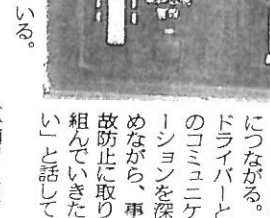 につながる。
ドライバーと
のコミュニケ
ーションを深
めながら、事
故防止に取り
組んでいきた
い」と話して
いる。